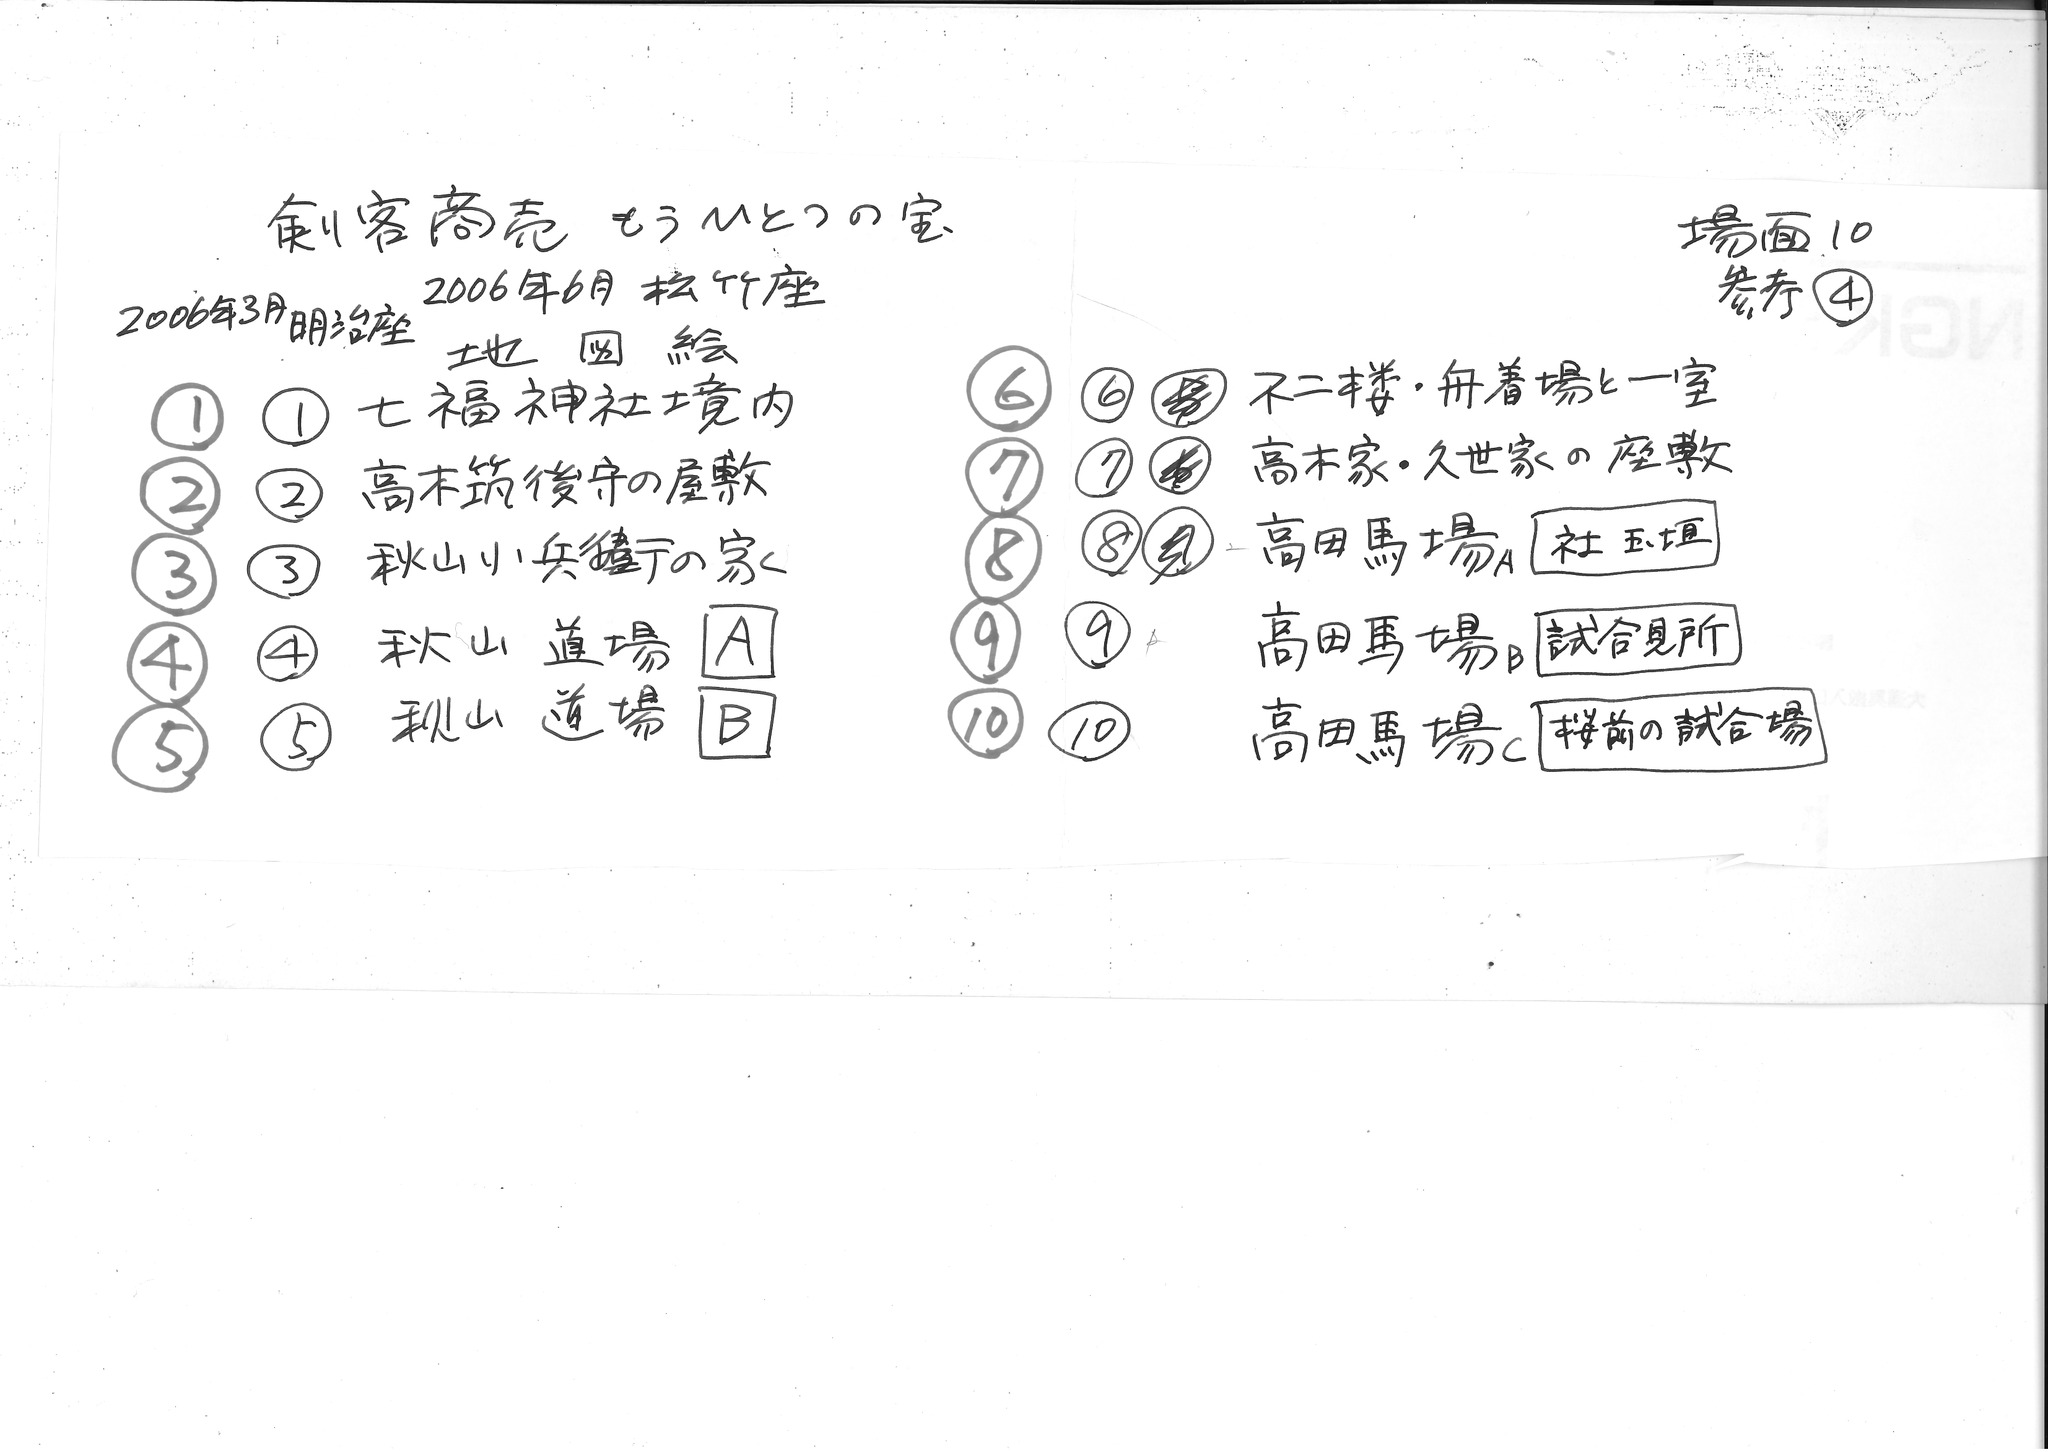 剣客商売 もうひとつの宝
場面10
参考④
2006年3月明治座
2006年6月 松竹座
地図絵
① ① 七福神社境内
② ② 高木筑後守の屋敷
③ ③ 秋山小兵衛の家
④ ④ 秋山道場 A
⑤ ⑤ 秋山道場 B
⑥ ⑥ 不二楼・舟着場と一室
⑦ ⑦ 高木家・久世家の座敷
⑧ ⑧ 高田馬場A 社玉垣
⑨ ⑨ 高田馬場B 試合見所
⑩ ⑩ 高田馬場C 桜前の試合場